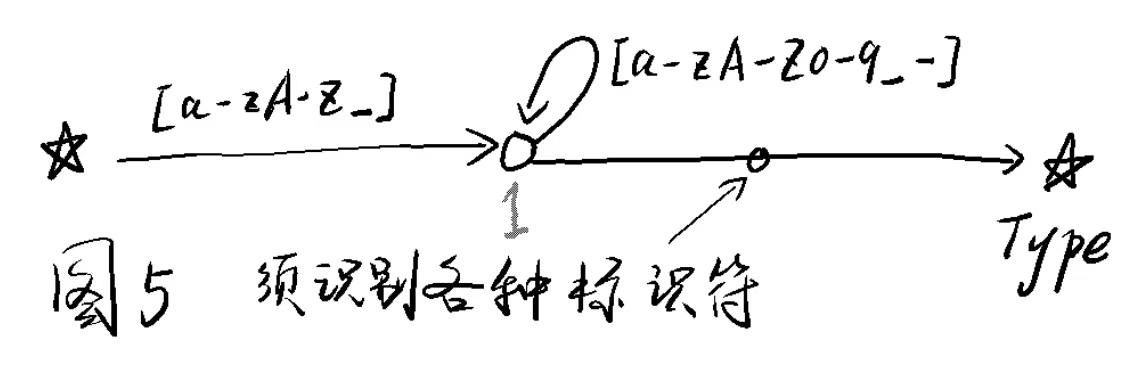 [a-zA-Z_]
[a-zA-Z0-9_-]
1
Type
图5 须识别各种标识符